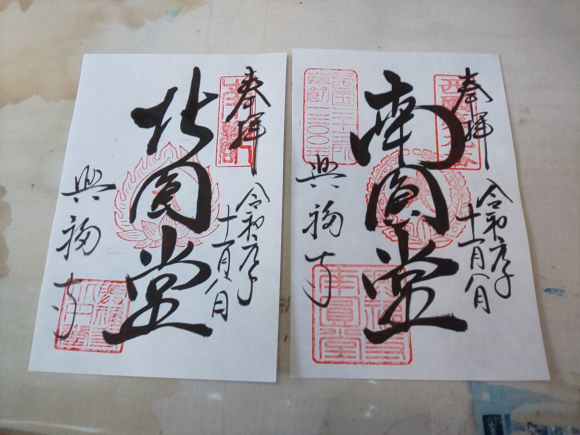 奉拝
令和元年
十一月八日
南圓堂
興福寺
西国第九番
奉拝
令和元年
十一月八日
北圓堂
興福寺